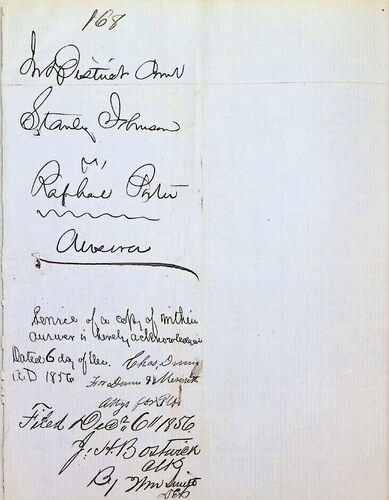 168
In District Court
Stanley Johnson
vs,
Raphael Porter
Answer
Service of a copy of within
answer is hereby acknowledged
Dated 6 day of Dec. Chas, Dunn
A D 1856 For Dunn & Meredith
Attys for Plff
Filed Dec 6" 1856
J. H. Bostwick
Clk
By Wm Smith
Dep